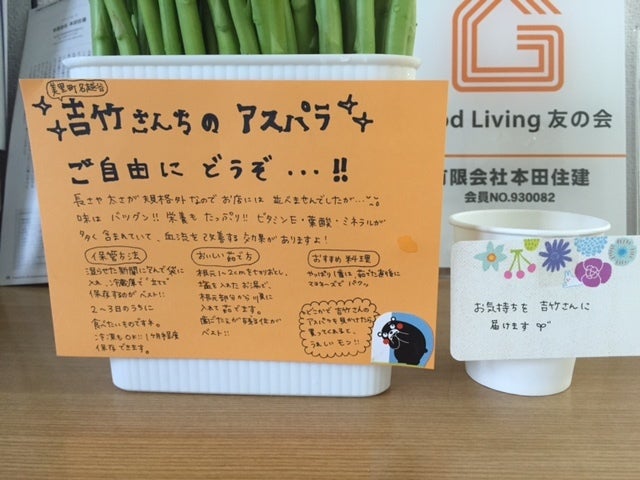 美里町名越谷
吉竹さんちの アスパラ
ご自由に どうぞ・・・!!
長さや太さが規格外なのでお店には並べませんでしたが…
味は バツグン!! 栄養も たっぷり!! ビタミンE・葉酸・ミネラルが
多く含まれていて、血流を改善する効果がありますよ!
保管方法
湿らせた新聞に包んで袋に
入れ、冷蔵庫で"立て"
保存するのがベスト!!
2〜3日のうちに
食べたいものですネ。
冷凍もOK!! 1ヶ月程度
保存できます。
おいしい茹で方
根元1〜2cmをかりおとし、
塩を入れたお湯で、
根元部分から順に
入れて茹でます。
歯ごたえが残る位が
ベスト!!
おすすめ料理
やっぱり1番は、茹でた直後に
マヨネーズで パクッ
どこかで 吉竹さんの
アスパラを見かけたら
買ってくれると、
うれしいモン!!
od Living 友の会
有限会社本田住建
会員NO.930082
お気持ちを 吉竹さんに
届けます